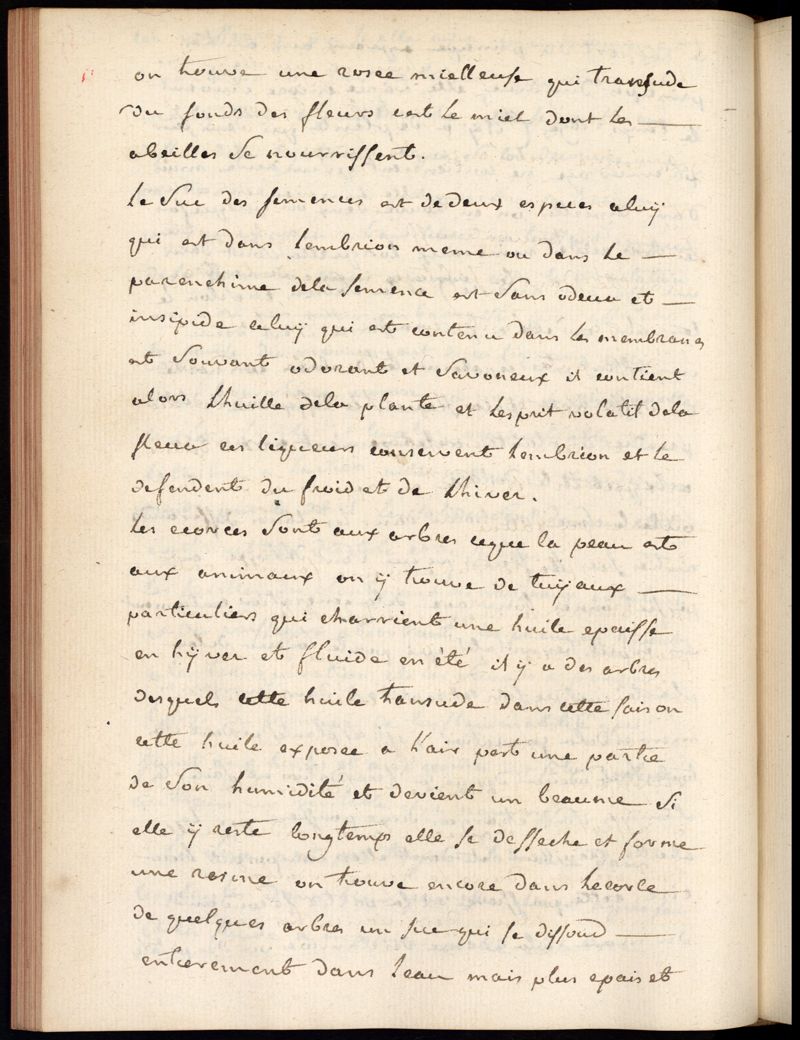 on trouve une rosee mielleuse qui transude
du fonds des fleurs cest le miel dont les —
abeilles se nourrissent.
Le suc des semences est dedeux especes celuy
qui est dans lembrion meme ou dans le —
parenchime dela semence est sans odeur et —
insipide celuy qui est contenu dans les membranes
est souvant odorant et savoneux il contient
alors lhuille dela plante et lesprit volatil dela
fleur ces liqueurs conservent lembrion et le
defendent du froid et de lhiver.
les ecorces sont aux arbres ceque la peau est
aux animaux on ÿ trouve de tuÿaux —
particuliers qui charrient une huile epaisse
en hÿver et fluide en été il ÿ a des arbres
desquels cette huile transude dans cette saison
cette huile exposee a l'air pert une partie
de son humidité et devient un beaume si
elle ÿ reste longtemps elle se desseche et forme
une resine on trouve encore dans lecorce
de quelques arbres un suc qui se dissoud —
entierement dans leau mais plus epais et